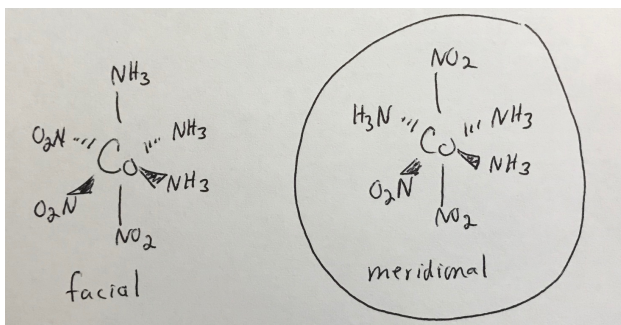 NH3
O2N NH3
Co
O2N NH3
NO2
facial
NO2
H3N NH3
Co
O2N NH3
NO2
meridional